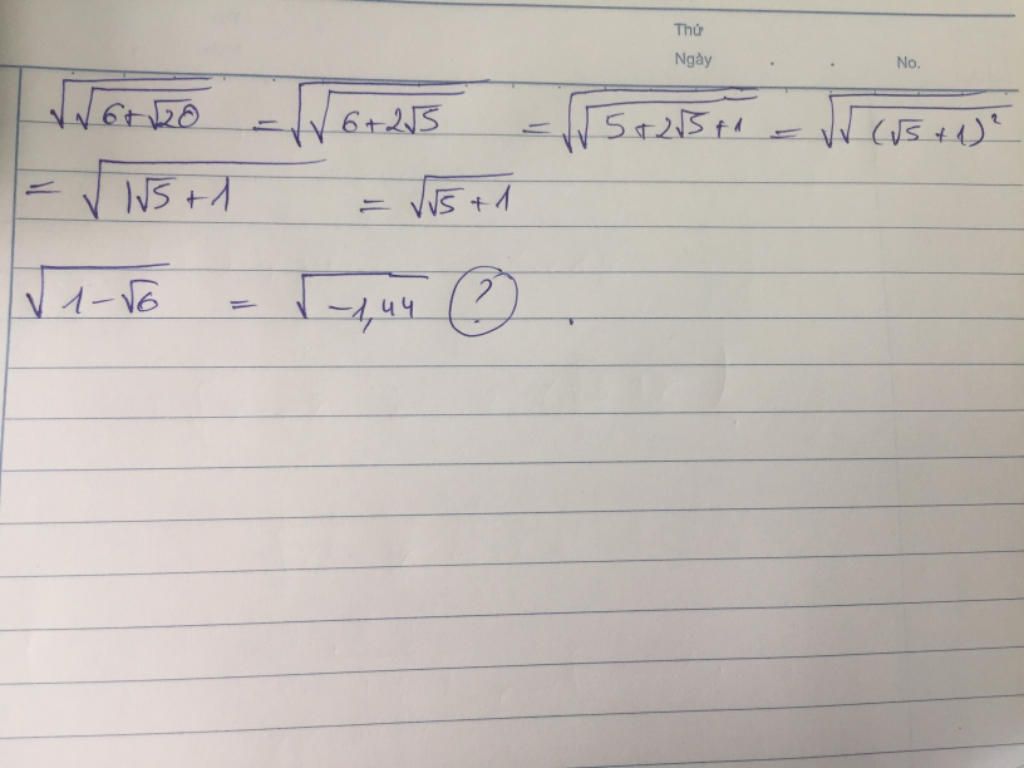 Thứ
Ngày . . No.
√√6+√20 = √√6+2√5 = √√5+2√5+1 = √√(√5+1)²
= √|√5+1 = √√5+1
√1-√6 = √-1,44 ? .